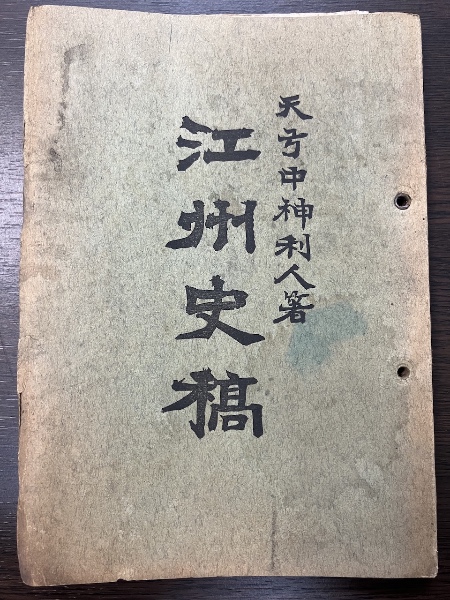 天弓中神利人箸
江州史稿